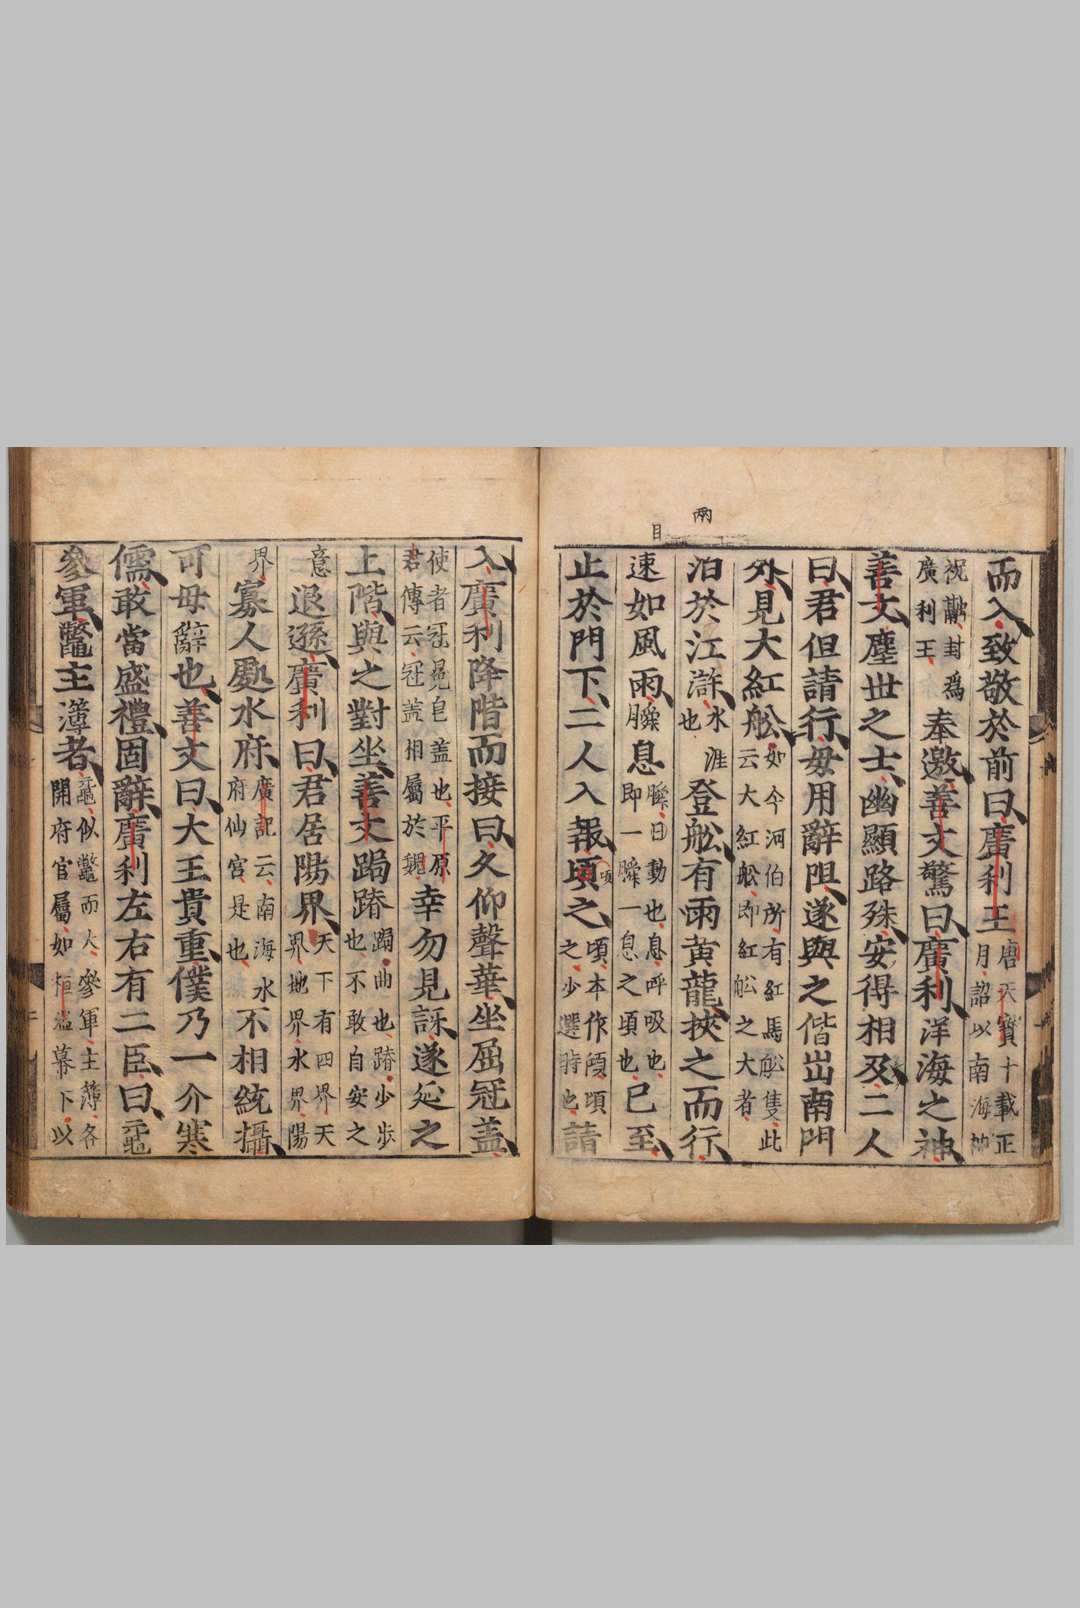 兩
目
而入致敬於前曰廣利王唐天寶十載正月詔以南海神
祝融封爲廣利王奉邀善文驚曰廣利洋海之神
善文塵世之士幽顯路殊安得相及二人
曰君但請行毋用辭阻遂與之偕出南門
外見大紅舩如今河伯所有紅馬舩隻此云大紅舩即紅舩之大者
泊於江滸水涯也登舩有雨黃龍挾之而行
速如風雨瞬息瞬日動也息呼吸也即一瞬一息之頃也已至
止於門下二人入報頃之頃本作頃頃之少選時也請
入廣利降階而接曰久仰聲華坐屈冠盖
使者冠冕皀盖也平原君傳云冠盖相屬於魏幸勿見訝遂延之
上階與之對坐善文跼蹐跼曲也蹐少步也不敢自安之
意退遜廣利曰君居陽界天下有四界天界地界水界陽
界寡人處水府廣記云南海水府仙宮是也不相統攝
可毋辭也善文曰大王貴重僕乃一介寒
儒敢當盛禮固辭廣利左右有二臣曰黿
參軍鼈主簿者黿似鼈而大參軍主薄各開府官屬如桓溫幕下以